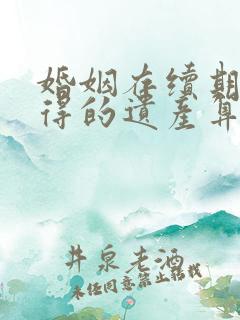 婚姻存续期
得的遗产算
井泉老酒
未经同意禁止转载